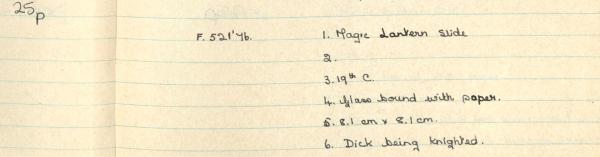 25p
F. 521'76. 1. Magic Lantern Slide
2.
3. 19th C.
4. Glass bound with paper.
5. 8.1 cm x 8.1 cm.
6. Dick being knighted.